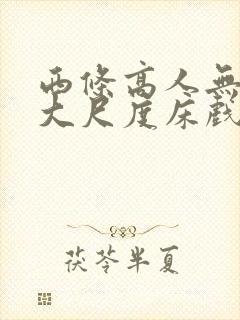 兩條高人無
大尺度床戲
茯苓半夏